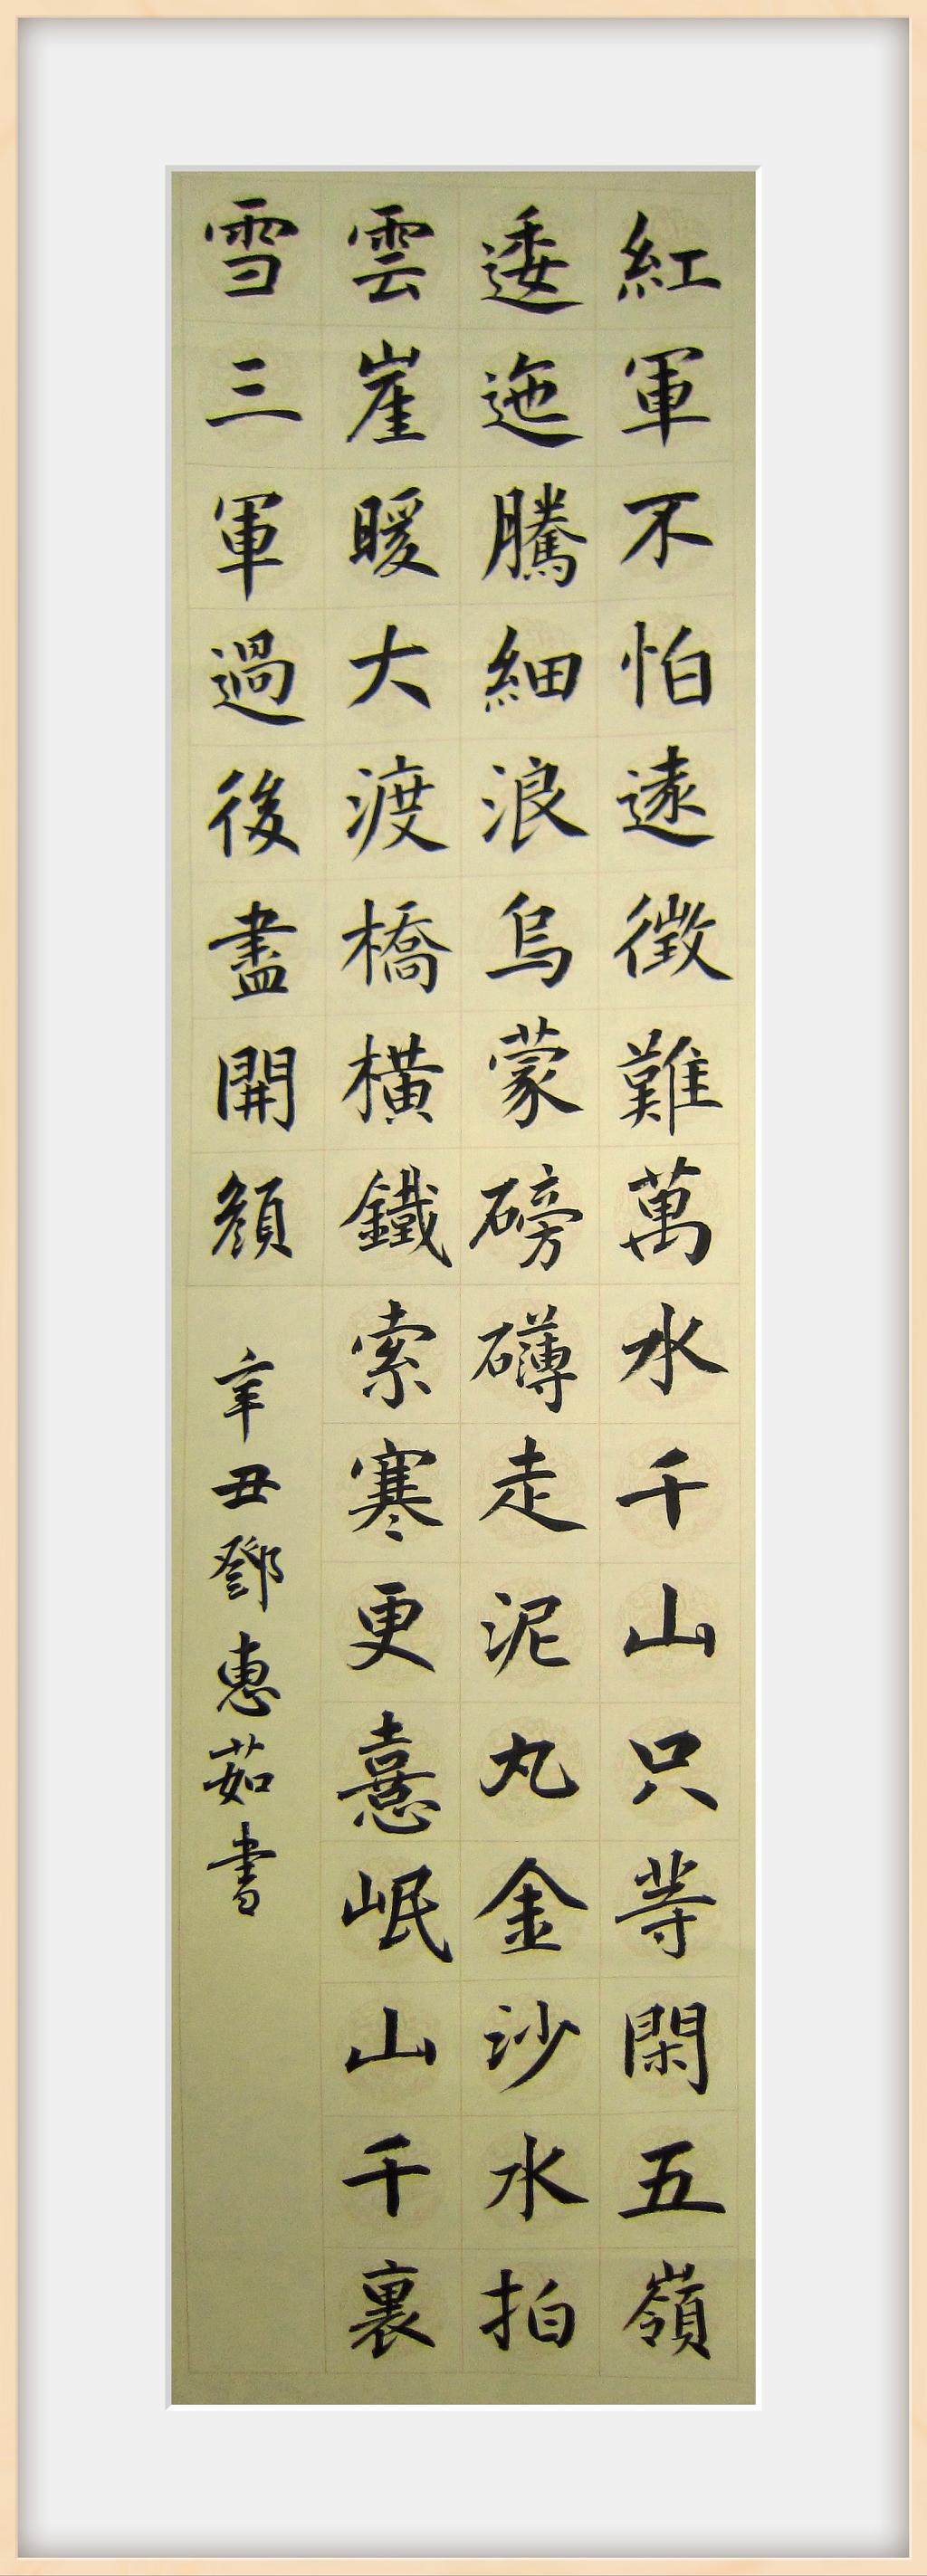 紅軍不怕遠徵難萬水千山只等閑五嶺
逶迤騰細浪烏蒙磅礴走泥丸金沙水拍
雲崖暖大渡橋橫鐵索寒更憙岷山千裏
雪三軍過後盡開顏
辛丑鄧惠茹書